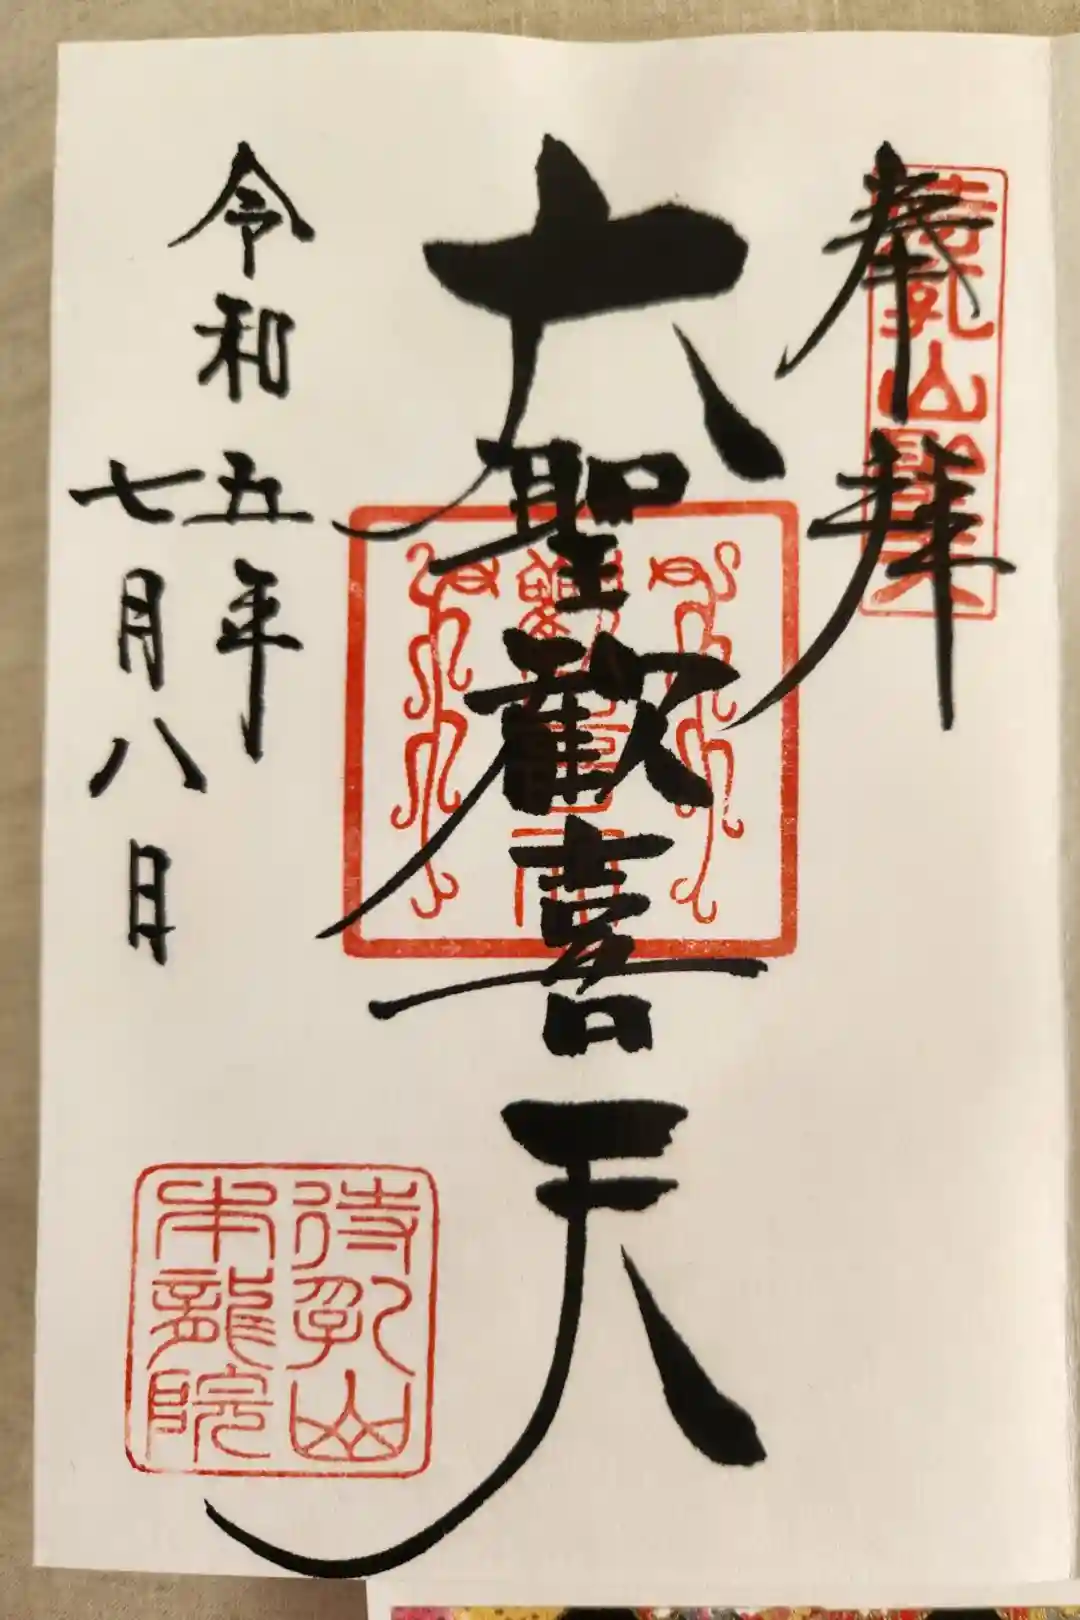 奉拝
待乳山聖天
大聖歓喜天
令和五年
七月八日
待乳山
本龍院